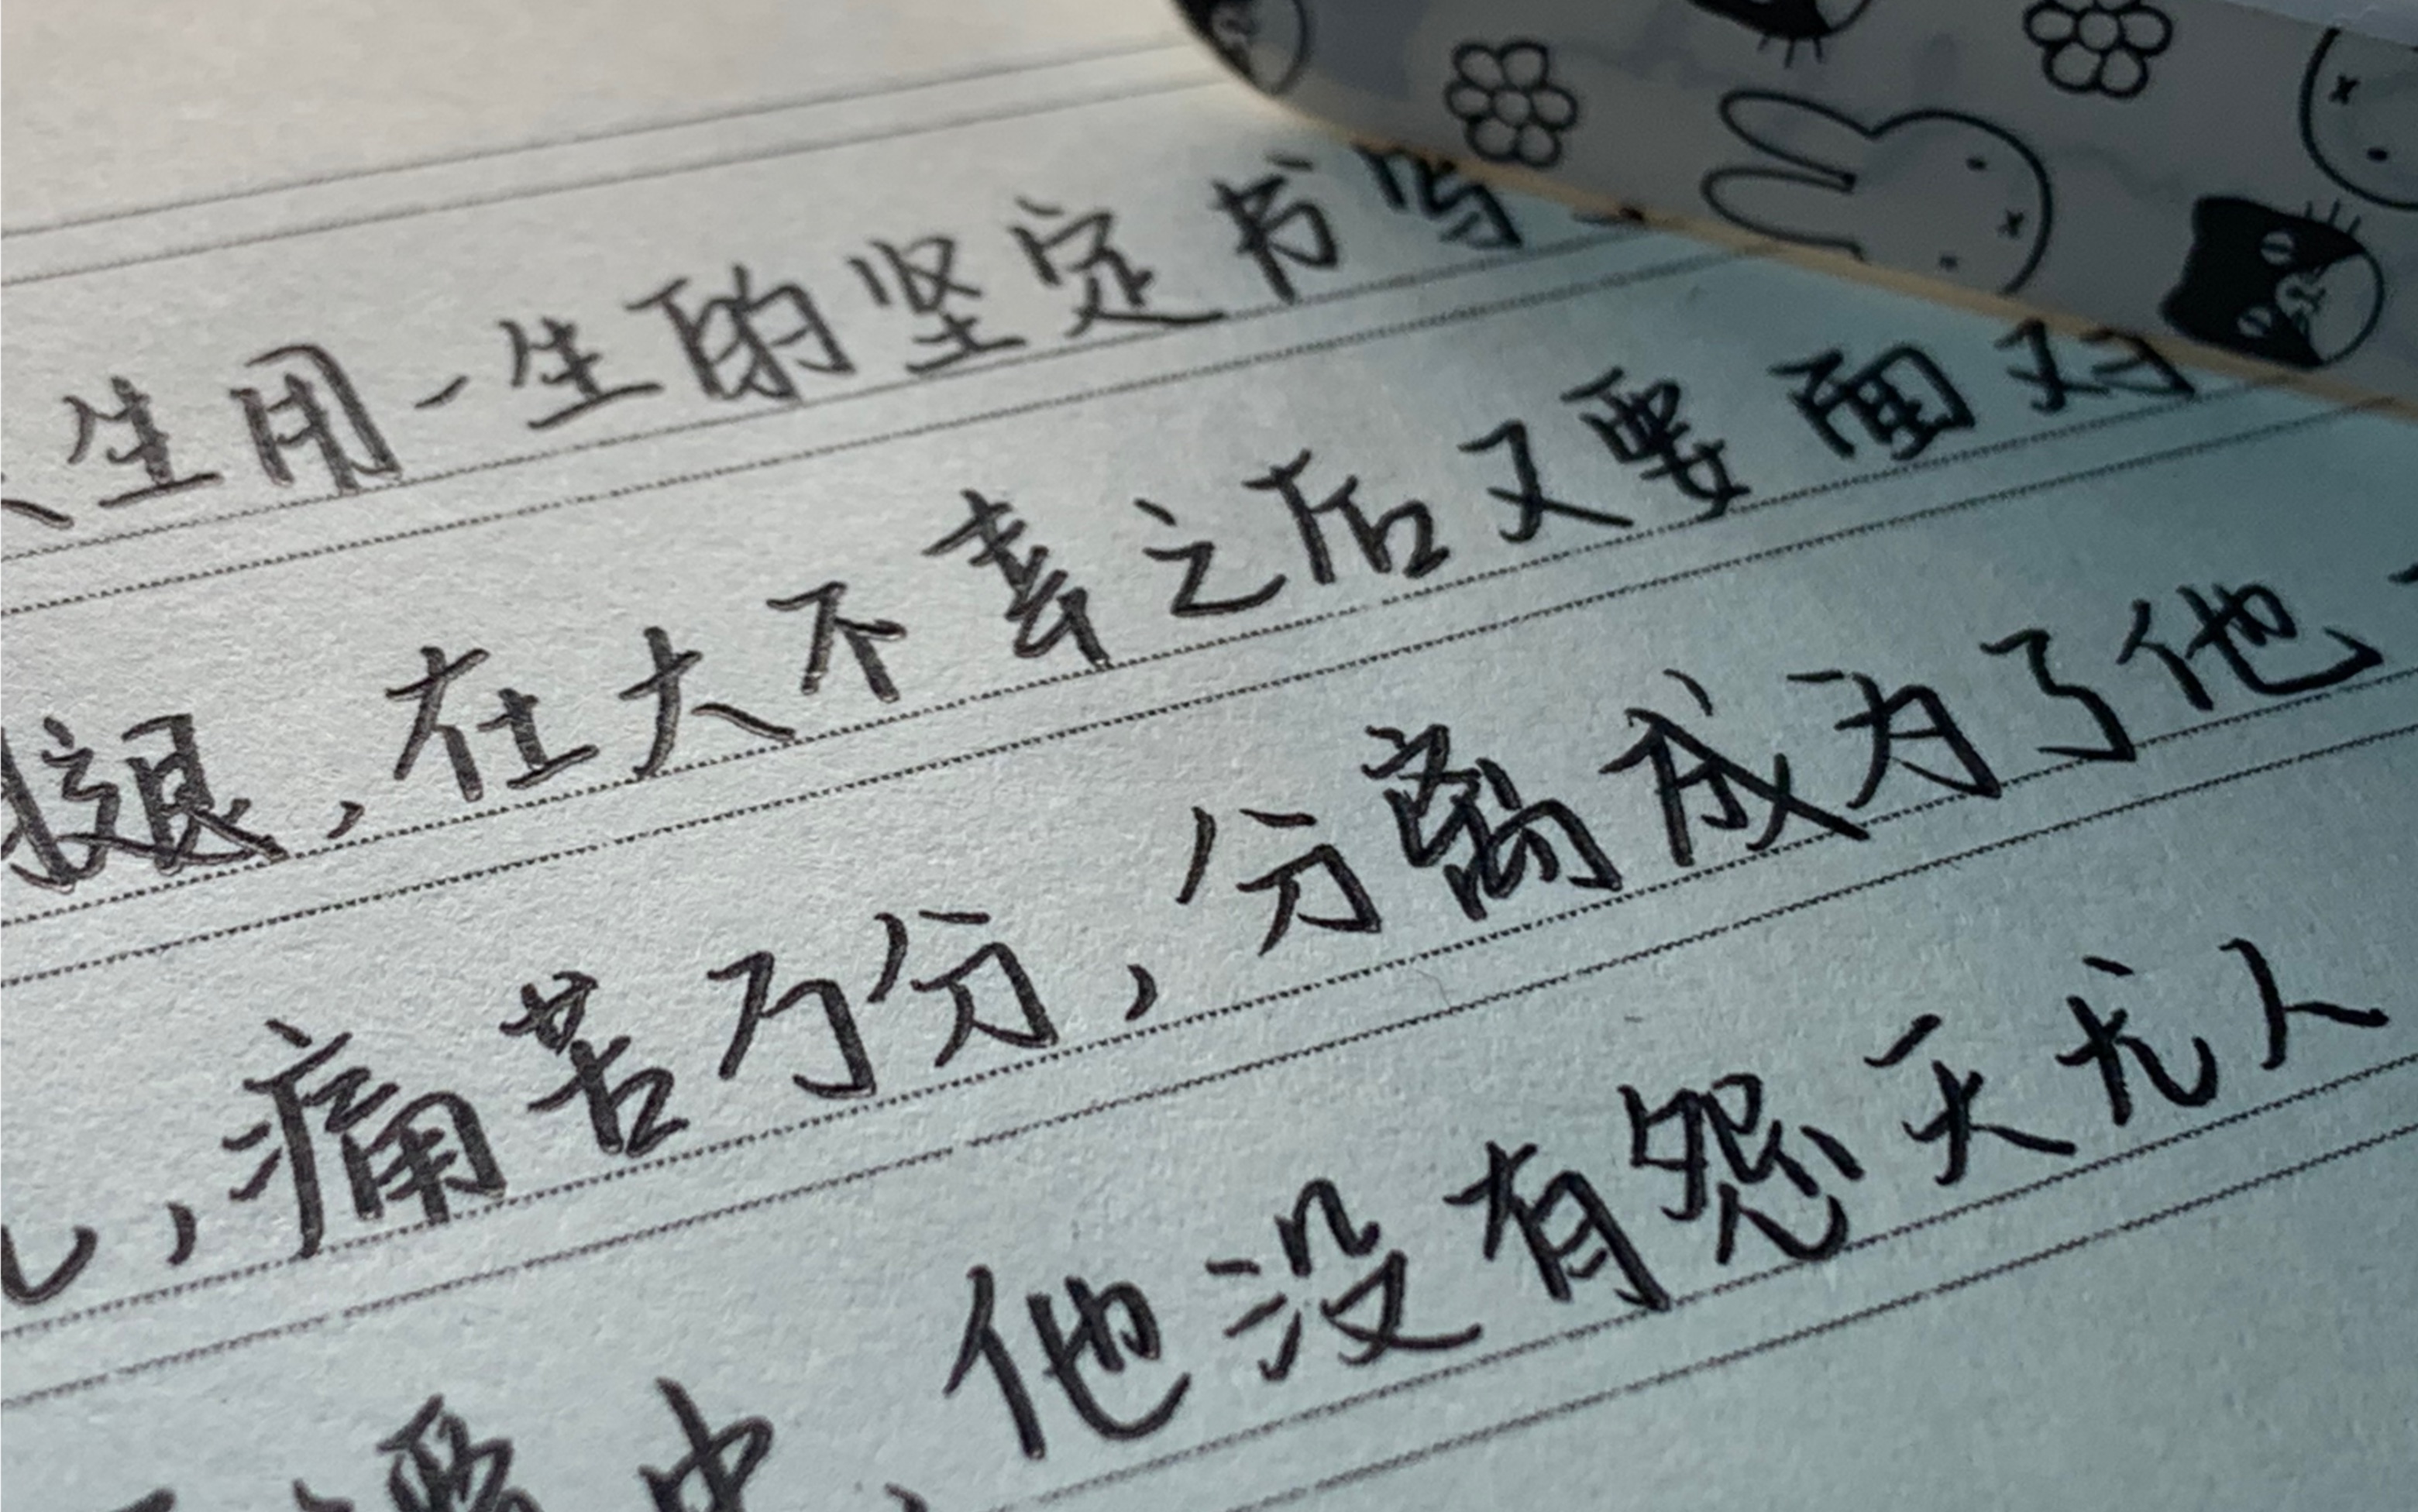 生用一生的坚定书写
腿,在大不幸之后又要面对
,痛苦万分,分离成为了他
中,他没有怨天尤人